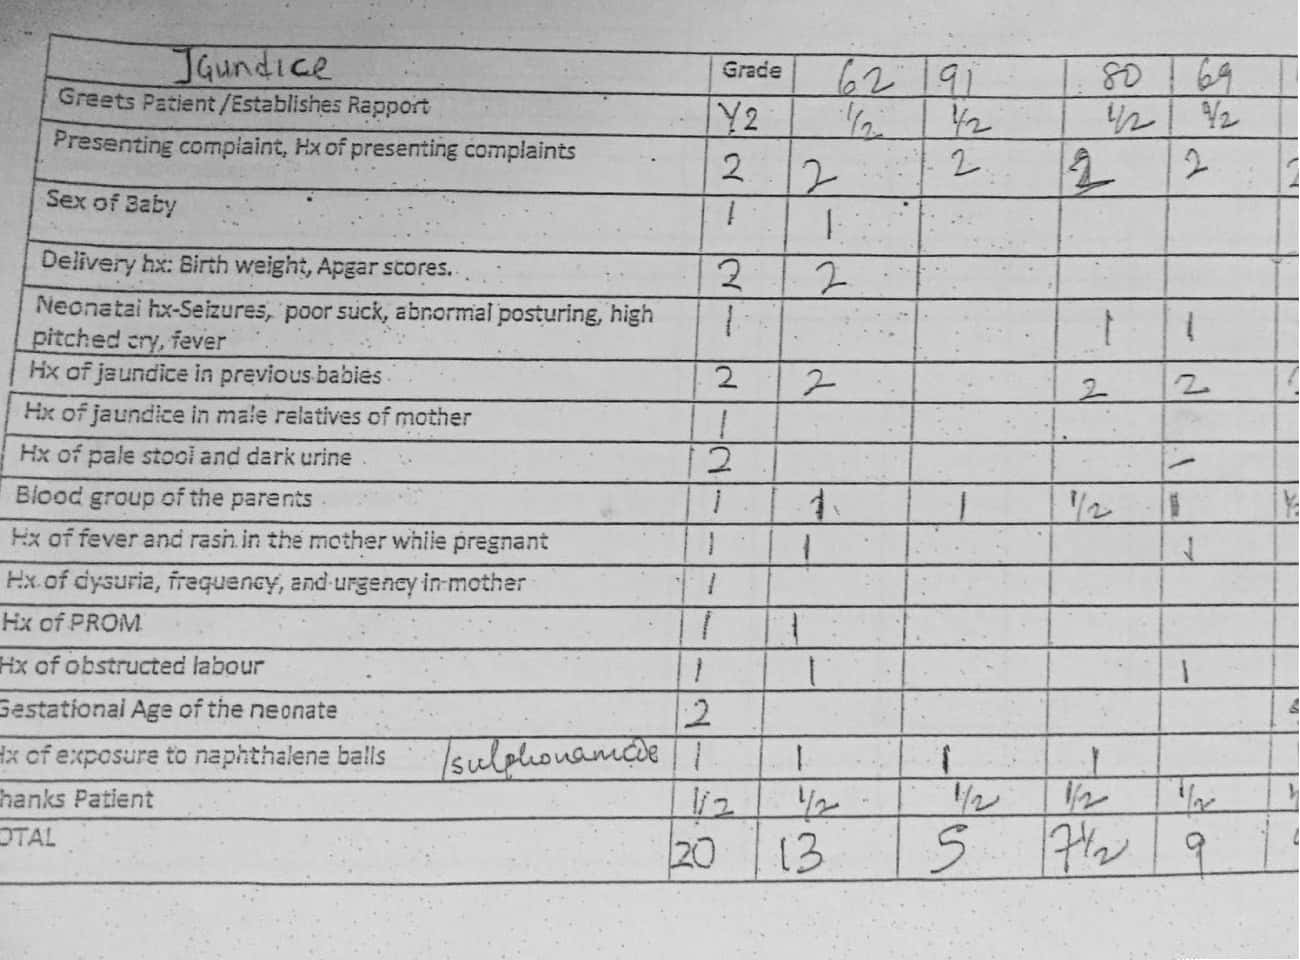 Jaundice Grade 62 91 80 69
Greets Patient/Establishes Rapport 1/2 1/2 1/2 1/2 1/2
Presenting complaint, Hx of presenting complaints 2 2 2 2 2
Sex of Baby 1 1
Delivery hx: Birth weight, Apgar scores. 2 2
Neonatal hx-Seizures, poor suck, abnormal posturing, high
pitched cry, fever 1 1 1
Hx of jaundice in previous babies 2 2 2 2
Hx of jaundice in male relatives of mother 1
Hx of pale stool and dark urine 2 -
Blood group of the parents 1 1 1 1/2 1
Hx of fever and rash in the mother while pregnant 1 1 1
Hx of dysuria, frequency, and urgency in mother 1
Hx of PROM 1 1
Hx of obstructed labour 1 1 1
Gestational Age of the neonate 2
Hx of exposure to naphthalene balls /sulphonamide 1 1 1 1
hanks Patient 1/2 1/2 1/2 1/2 1/2
OTAL 20 13 5 7 1/2 9